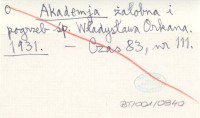 O Akademja żałobna i
pogrzeb śp. Władysława Orkana.
1931. — Czas 83, nr 111.